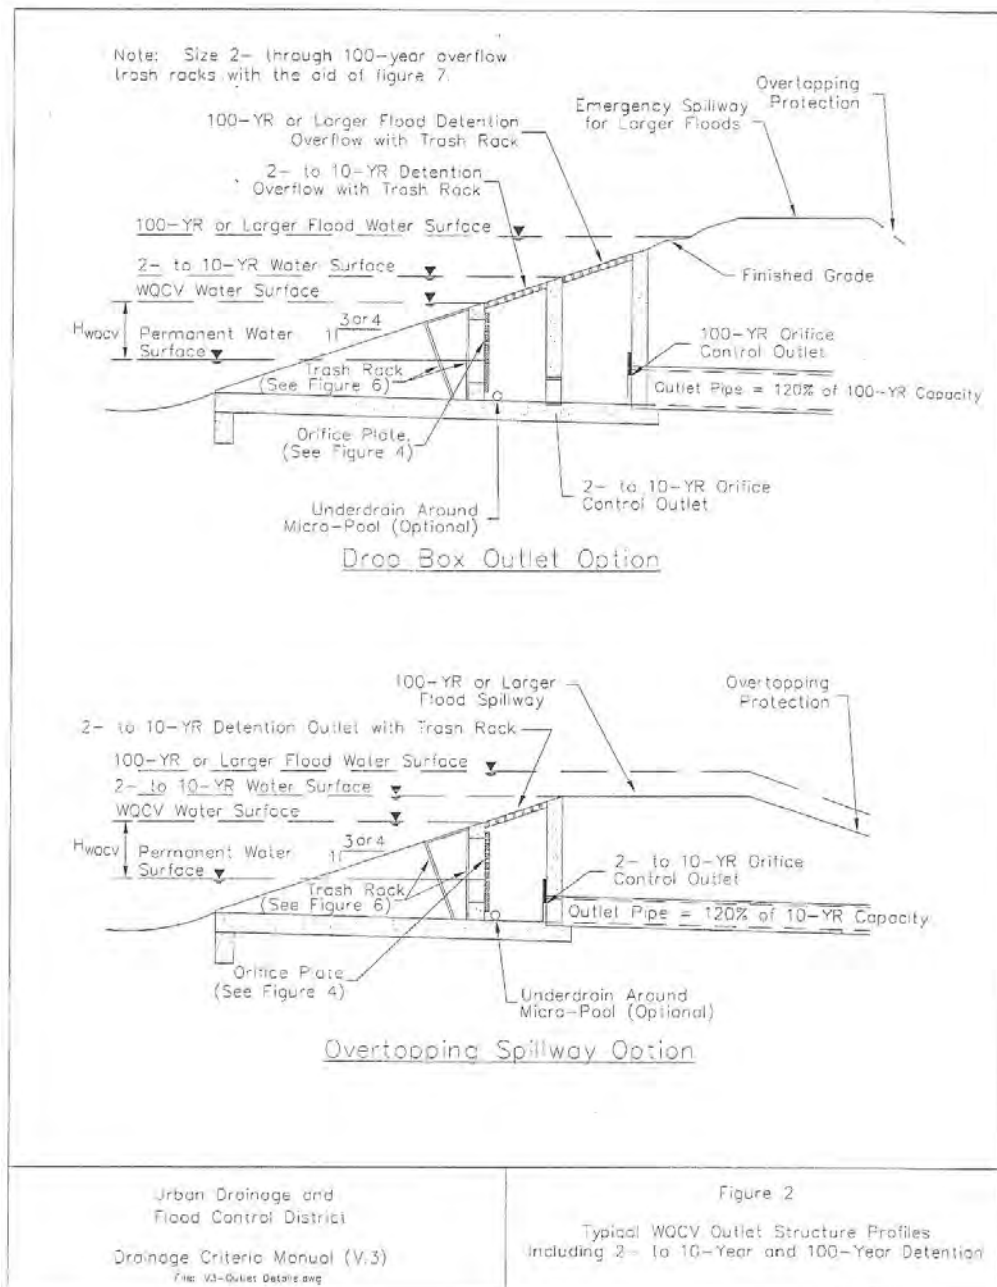 Note: Size 2- through 100-year overflow
trash racks with the aid of figure 7.
Overtopping
Protection
Emergency Spillway
for Larger Floods
100-YR or Larger Flood Detention
Overflow with Trash Rack
2- to 10-YR Detention
Overflow with Trash Rack
100-YR or Larger Flood Water Surface
2- to 10-YR Water Surface
WQCV Water Surface
Finished Grade
HWQCV
Permanent Water
Surface
3 or 4
1
100-YR Orifice
Control Outlet
Trash Rack
(See Figure 6)
Outlet Pipe = 120% of 100-YR Capacity
Orifice Plate
(See Figure 4)
2- to 10-YR Orifice
Control Outlet
Underdrain Around
Micro-Pool (Optional)
Drop Box Outlet Option
100-YR or Larger
Flood Spillway
Overtopping
Protection
2- to 10-YR Detention Outlet with Trash Rack
100-YR or Larger Flood Water Surface
2- to 10-YR Water Surface
WQCV Water Surface
HWQCV
Permanent Water
Surface
3 or 4
1
2- to 10-YR Orifice
Control Outlet
Trash Rack
(See Figure 6)
Outlet Pipe = 120% of 10-YR Capacity
Orifice Plate
(See Figure 4)
Underdrain Around
Micro-Pool (Optional)
Overtopping Spillway Option
Urban Drainage and
Flood Control District
Drainage Criteria Manual (V.3)
File: V3-Outlet Details.dwg
Figure 2
Typical WQCV Outlet Structure Profiles
Including 2- to 10-Year and 100-Year Detention